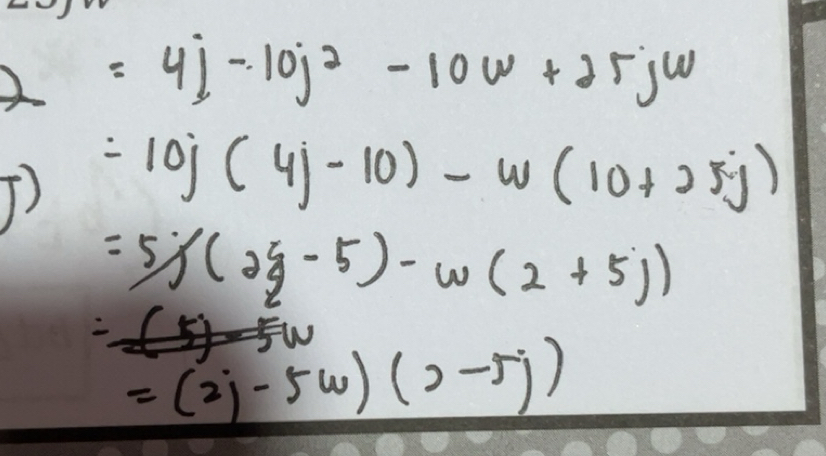 = 4j - 10j² - 10w + 25jw
= 10j ( 4j - 10) - w ( 10 + 25j)
j)
= 5j ( 2j - 5) - w ( 2 + 5j)
= (5j - 5w
= (2j - 5w) ( 2 - 5j)